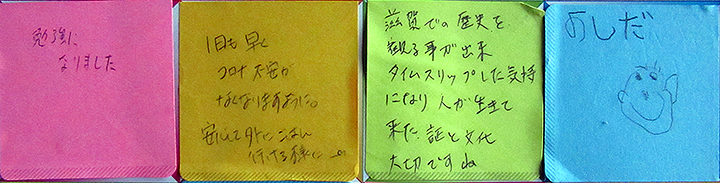 勉強に
なりました
1日も早く
コロナ不安が
なくなりますように。
安心して外にごはん
行ける様に
滋賀での歴史を
観る事が出来
タイムスリップした気持
になり人が生きて
来た証と文化
大切ですね
よしだ